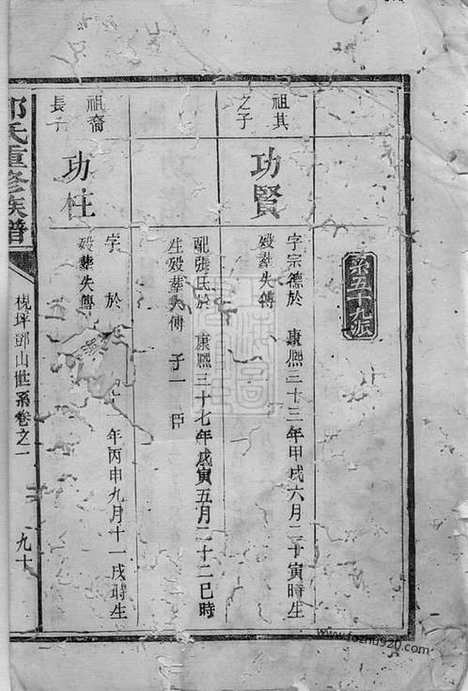 系五十九派
祖其
之子
功賢
字宗德於 康熙三十三年甲戌六月二十寅時生
歿葬失傳
配張氏於 康熙三十七年戊寅五月二十二巳時
生歿葬失傳 子一 臣
祖裔
長子
功柱
字 於 年丙申九月十一戌時生
歿葬失傳
氏重修族譜
梘坪鄧山世系卷之一 九十
www.fozhu920.com